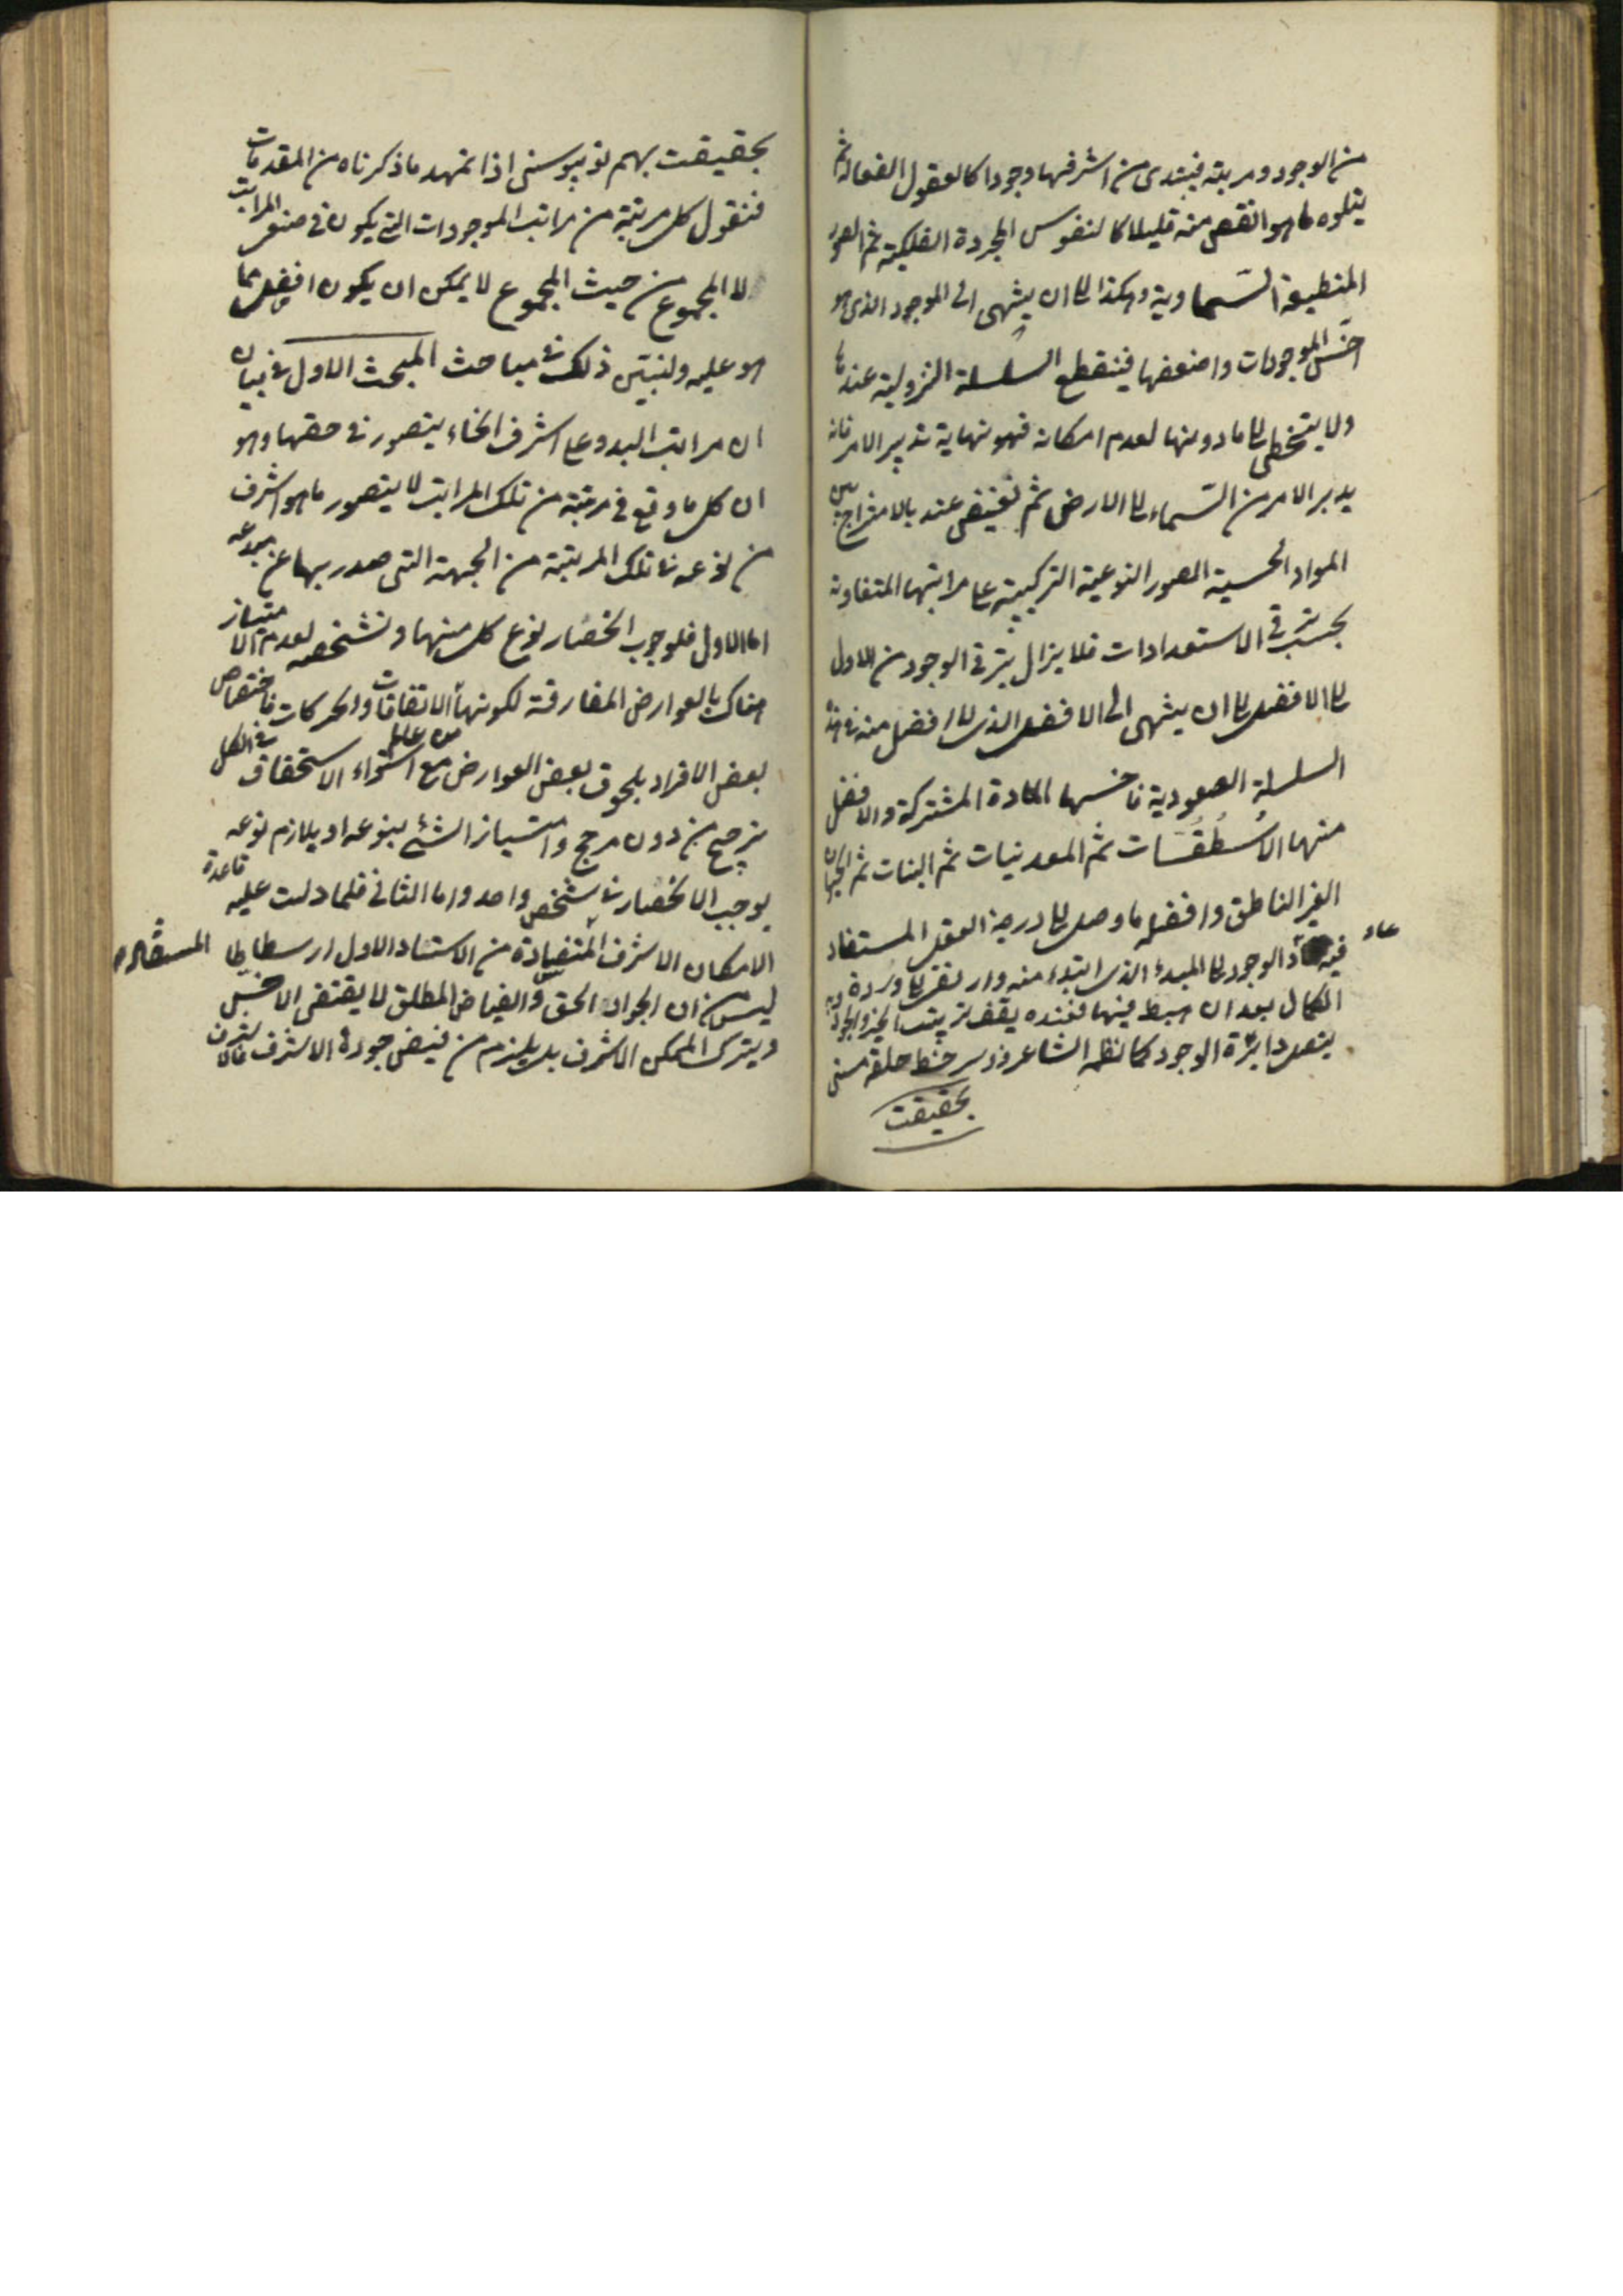 من الوجود ومرتبته فيبتدى من اشرفها وجودا كالعقول الفعالة ثم
يتلوه ما هو انقص منه قليلا كالنفوس المجردة الفلكية ثم الصور
المنطبعة السماوية وهكذا الى ان ينتهى الى الموجود الذى هو
اخس الموجودات واضعفها فينقطع السلسلة النزولية عندها
ولا يتخطى الى ما دونها لعدم امكانه فهو نهاية تدبير الامر فانه
يدبر الامر من السماء الى الارض ثم تفيض عنده بالامتزاج بين
المواد الحسية الصور النوعية التركيبية على مراتبها المتفاوتة
بحسب ترقى الاستعدادات فلا يزال يترقى الوجود من الاول
الى الافضل الى ان ينتهى الى الافضل الذى لا افضل منه فى هذه
السلسلة الصعودية فاخسها المادة المشتركة والافضل
منها الاسطقسات ثم المعدنيات ثم النبات ثم الحيوان
الغير الناطق وافضله ما وصل الى درجة العقل المستفاد
فيه عاد الوجود الى المبدء الذى ابتدء منه وارتقى الى ذروة
الكمال بعد ان هبط فيها فعنده يقف ترتيب الخير والجود وبه
يتصل دائرة الوجود كما نظمه الشاعر دو سر خط حلقه هستى
بحقيقت
بحقيقت بهم تو پيوستى اذا تمهد ما ذكرناه من المقدمات
فنقول كل مرتبة من مراتب الموجودات التى يكون فى صنع المراتب
لا المجموع من حيث المجموع لا يمكن ان يكون افضل مما
هو عليه ولنبين ذلك فى مباحث المبحث الاول فى بيان
ان مراتب البدو على اشرف انحاء يتصور فى حقها وهو
ان كل ما وقع فى مرتبة من تلك المراتب لا يتصور ما هو اشرف
من نوعه فى تلك المرتبة من الجهة التى صدر بها عن مبدعه
اما الاول فلوجوب انحصار نوع كل منها وتشخصه لعدم الامتياز
هناك بالعوارض المفارقة لكونها الاتفاقات والحركات فاختصاص
بعض الافراد بلحوق بعض العوارض مع استواء الاستحقاق فى الكل
ترجيح من دون مرجح وامتياز الشئ بنوعه او بلازم نوعه
يوجب الانحصار فى شخص واحد واما الثانى فلما دلت عليه قاعدة
الامكان الاشرف المستفادة من الاستاد الاول ارسطاطا
ليس من ان الجواد الحق والفياض المطلق لا يقتضى الاخس
ويترك الممكن الاشرف بل يلزم من فيض جوده الاشرف فالاشرف